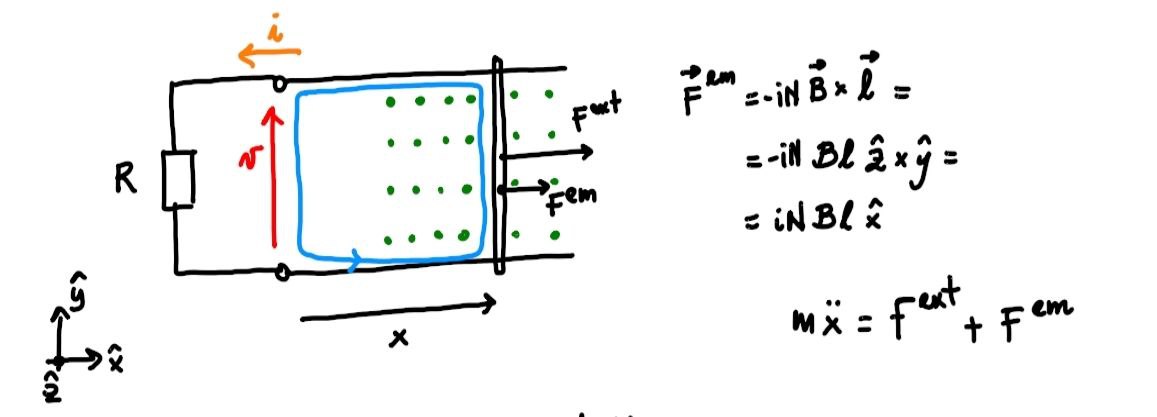 i
R
v
F^ext
F^em
x
ŷ
x̂
ẑ
F⃗^em = -iN B⃗ × l⃗ =
= -iN Bl ẑ × ŷ =
= iNBl x̂
mẍ = F^ext + F^em